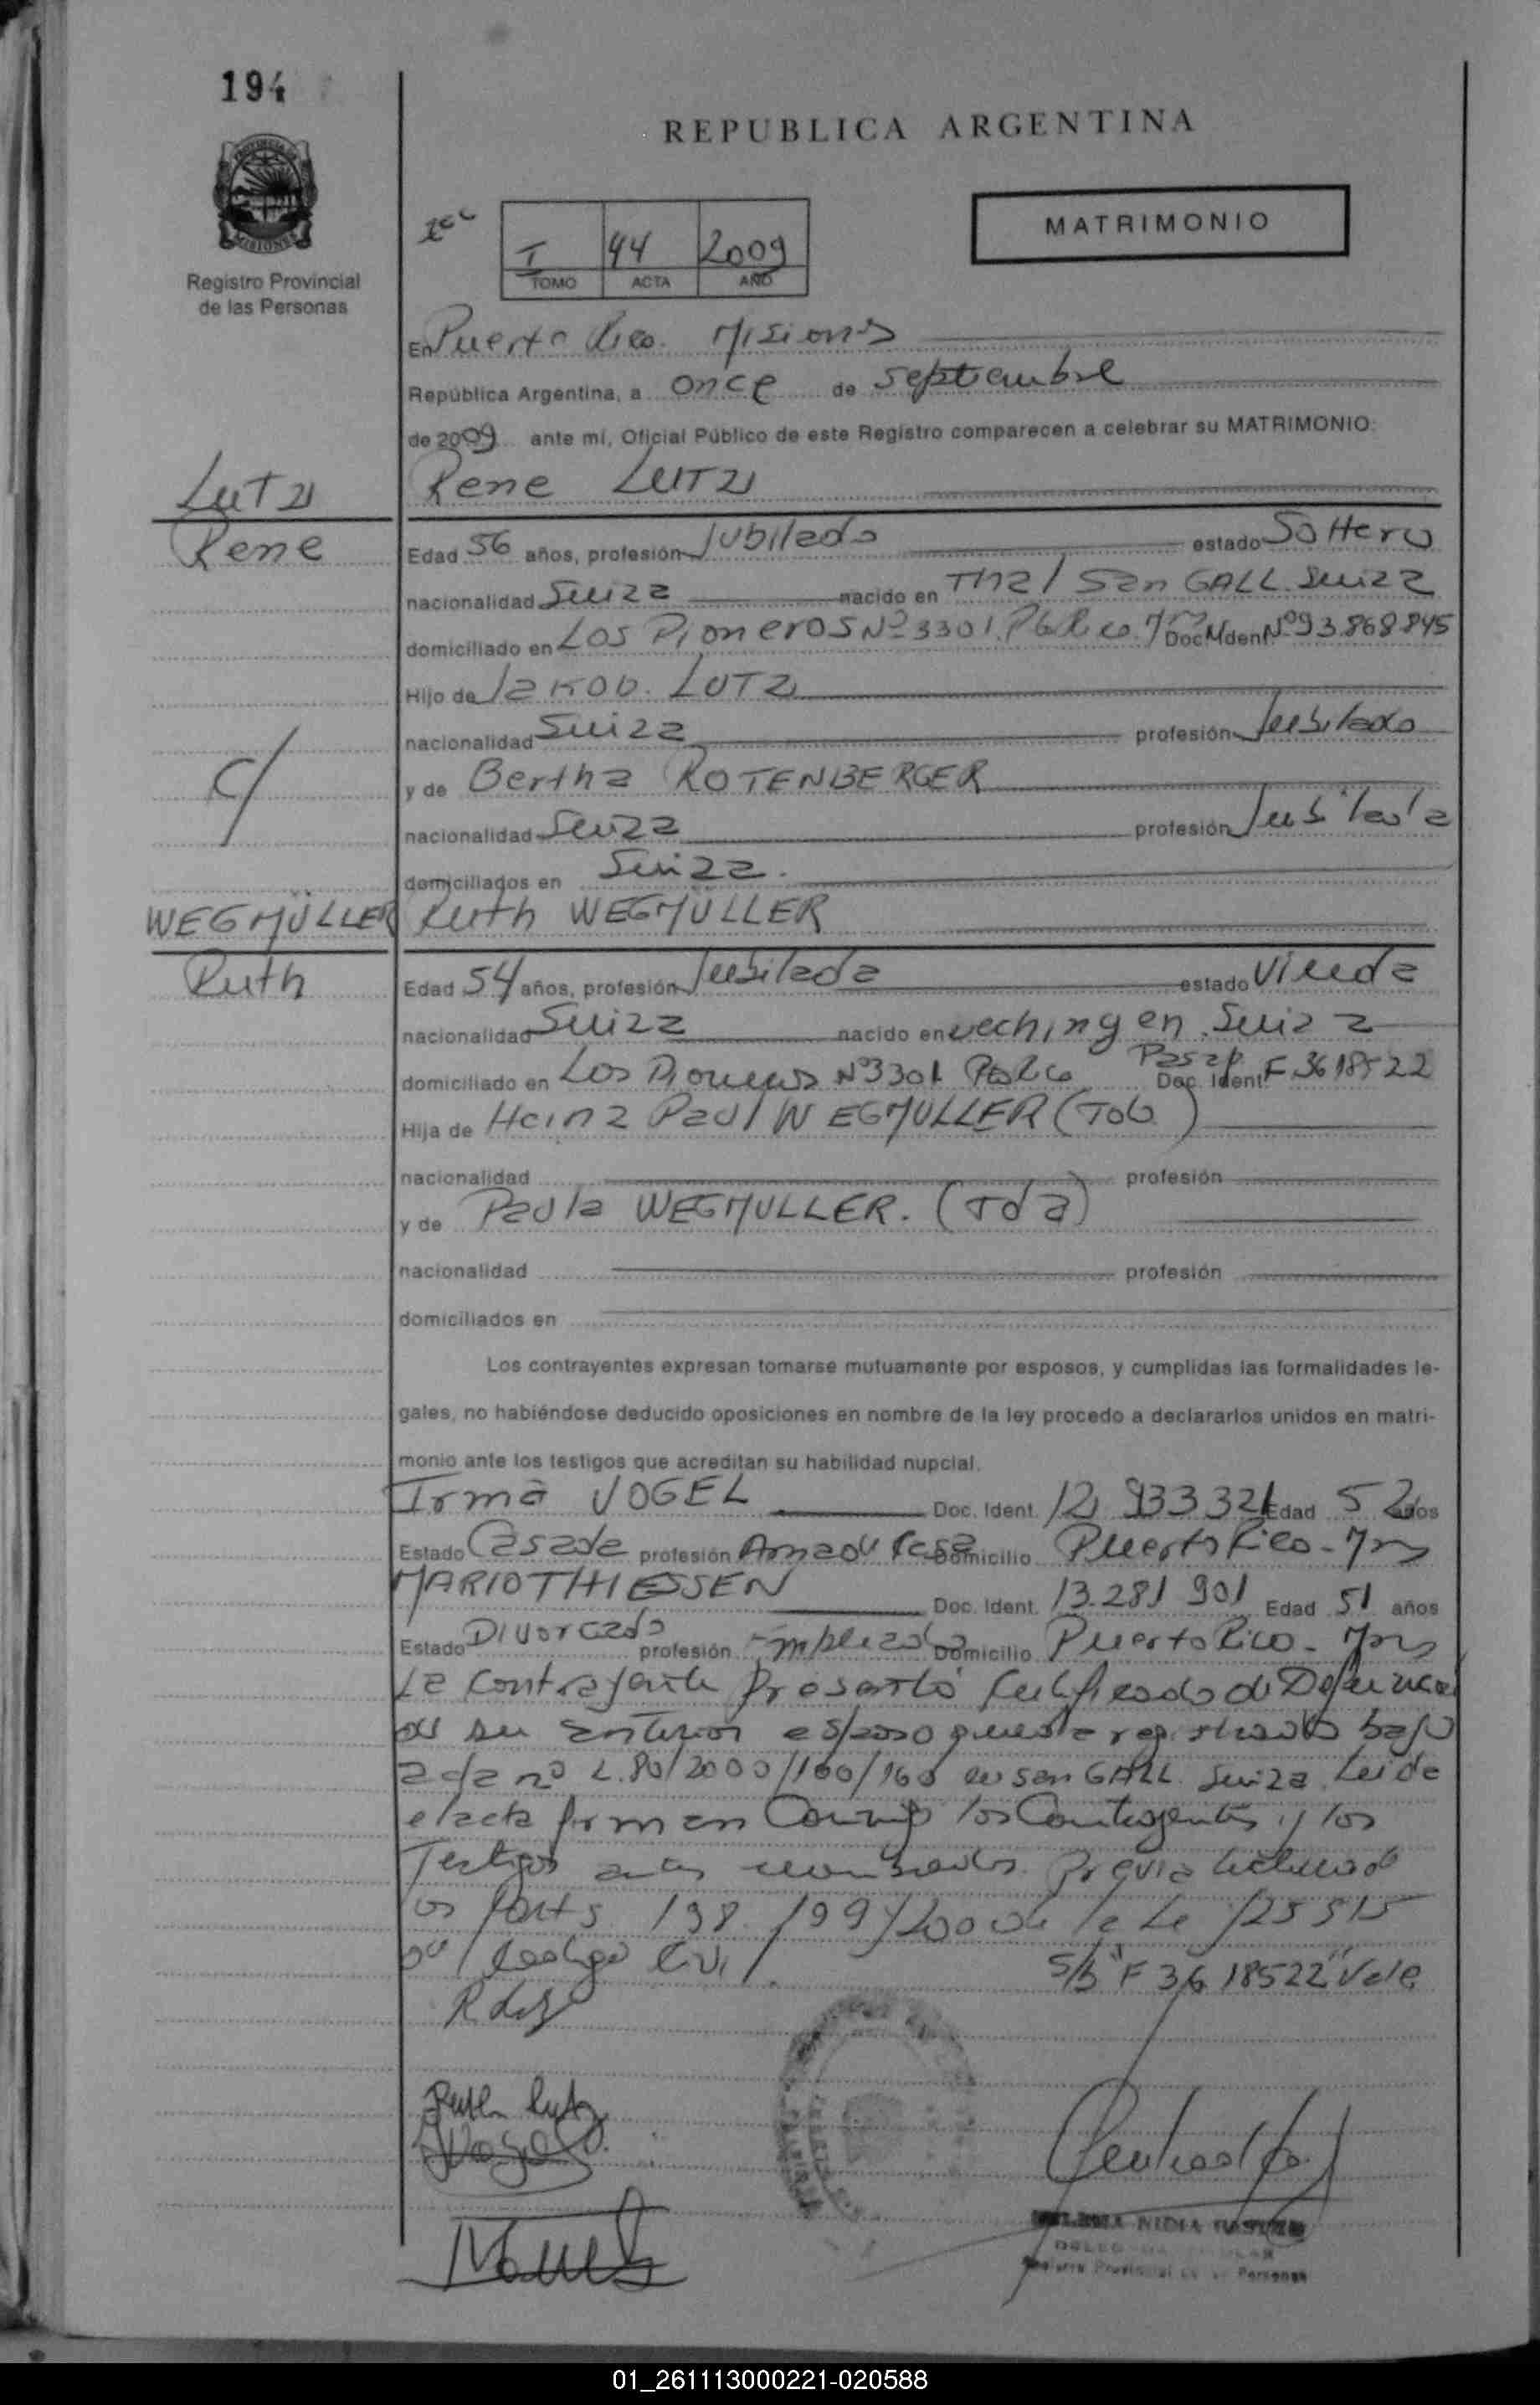 194
REPUBLICA ARGENTINA
MATRIMONIO
I 44 2009
TOMO ACTA AÑO
Registro Provincial
de las Personas
En Puerto Rico. Misiones
República Argentina, a once de septiembre
de 2009 ante mí, Oficial Público de este Registro comparecen a celebrar su MATRIMONIO:
LUTZ
Rene LUTZ
Rene
Edad 56 años, profesión Jubilado estado Soltero
nacionalidad Suiza nacido en Thal San GALL Suiza
domiciliado en Los Pioneros Nº 3301. Pto Rico. Mnes Doc. Ident. Nº 93.868.845
Hijo de Jakob. LUTZ
nacionalidad Suiza profesión Jubilado
C/
y de Bertha ROTENBERGER
nacionalidad Suiza profesión Jubilada
domiciliados en Suiza.
WEGMÜLLER
Ruth WEGMÜLLER
Ruth
Edad 54 años, profesión Jubilada estado Viuda
nacionalidad Suiza nacido en vechingen. Suiza
domiciliado en Los Pioneros Nº 3301 Pto Rico Pasap. Doc. Ident. F.3618522
Hija de Heinz Paul WEGMULLER (Tdo)
nacionalidad profesión
y de Paula WEGMULLER. (Tda)
nacionalidad profesión
domiciliados en
Los contrayentes expresan tomarse mutuamente por esposos, y cumplidas las formalidades le-
gales, no habiéndose deducido oposiciones en nombre de la ley procedo a declararlos unidos en matri-
monio ante los testigos que acreditan su habilidad nupcial.
Irma VOGEL Doc. Ident. 12.933321 Edad 52 años
Estado Casada profesión Ama de Casa Domicilio Puerto Rico - Mnes
MARIO THIESSEN Doc. Ident. 13.281 901 Edad 51 años
Estado Divorciado profesión Empleado Domicilio Puerto Rico - Mnes
La Contrayente Presentó Certificado de Defuncion
de su anterior esposo registrado bajo
acta nº L.80/2000/160/160 en San GALL. Suiza. Leida
el acta firman Conmigo los Contrayentes y los
Testigos Previa lectura de
los Parts 198. 199/200 de la Le
del Codigo Civil.
S/b "F 3618522" Vale
Ruth Lutz
NIDIA
Registro Provincial de las Personas
01_261113000221-020588